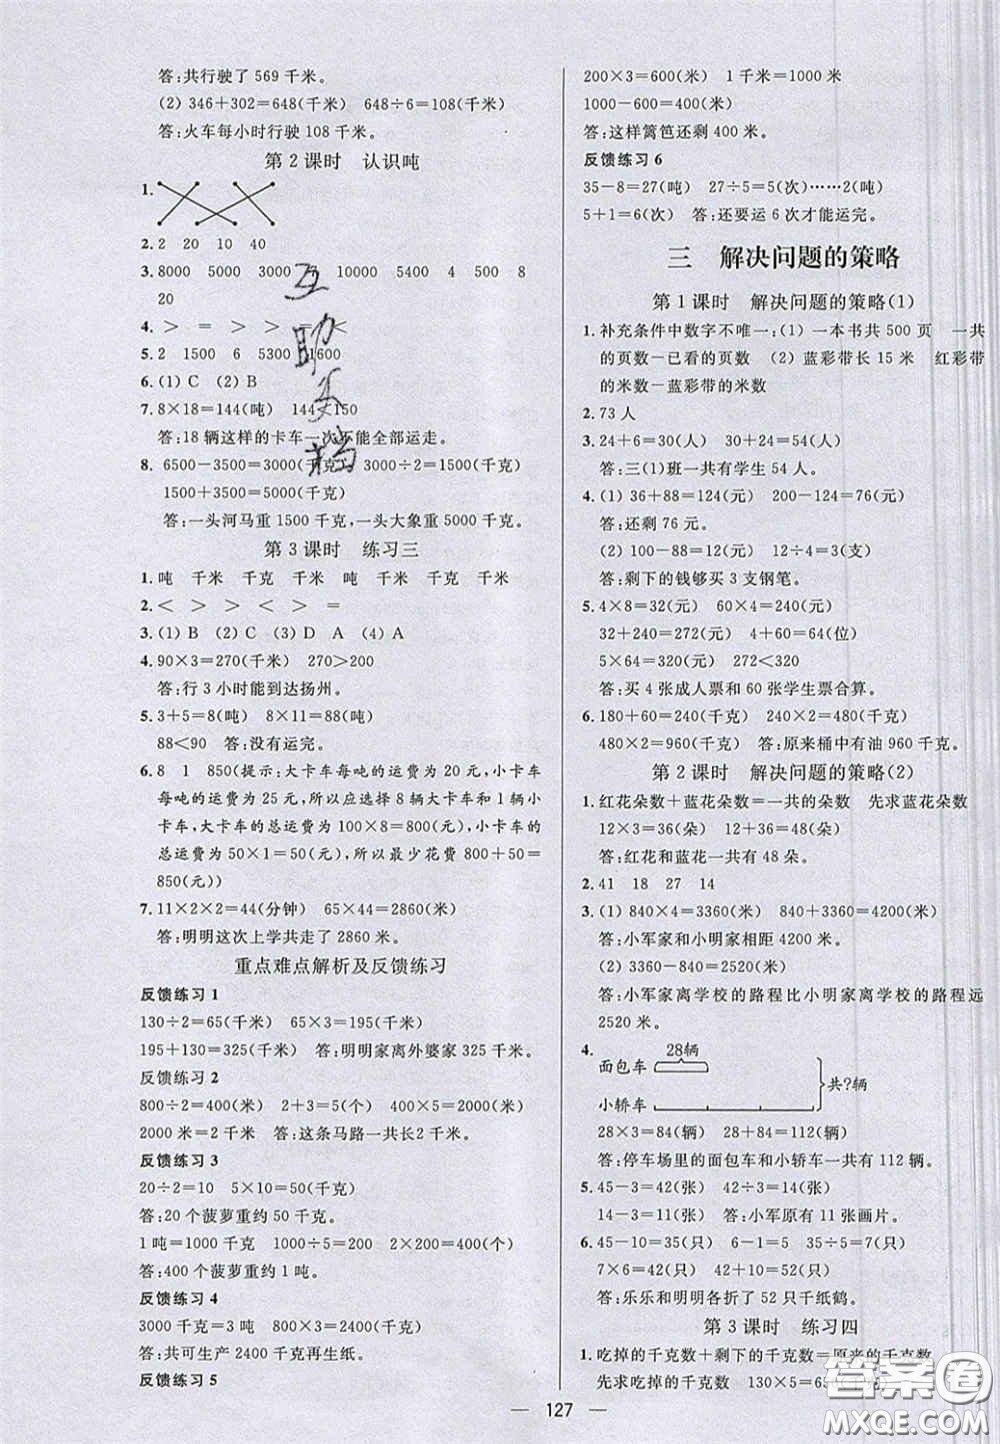 答:共行驶了 569 千米。
(2) 346+302=648(千米) 648÷6=108(千米)
答:火车每小时行驶 108 千米。
第 2 课时 认识吨
1.
2. 2 20 10 40
3. 8000 5000 3000 7 10000 5400 4 500 8
20
4. > = > > = <
5. 2 1500 6 5300 1600
6. (1) C (2) B
7. 8×18=144(吨) 144<150
答:18 辆这样的卡车一次不能全部运走。
8. 6500-3500=3000(千克) 3000÷2=1500(千克)
1500+3500=5000(千克)
答:一头河马重 1500 千克,一头大象重 5000 千克。
第 3 课时 练习三
1. 吨 千米 千克 千米 吨 千米 千克 千米
2. < > > < > =
3. (1) B (2) C (3) D A (4) A
4. 90×3=270(千米) 270>200
答:行 3 小时能到达扬州。
5. 3+5=8(吨) 8×11=88(吨)
88<90 答:没有运完。
6. 8 1 850(提示:大卡车每吨的运费为 20 元,小卡车
每吨的运费为 25 元,所以应选择 8 辆大卡车和 1 辆小
卡车,大卡车的总运费为 100×8=800(元),小卡车的
总运费为 50×1=50(元),所以最少花费 800+50=
850(元))
7. 11×2×2=44(分钟) 65×44=2860(米)
答:明明这次上学共走了 2860 米。
重点难点解析及反馈练习
反馈练习 1
130÷2=65(千米) 65×3=195(千米)
195+130=325(千米) 答:明明家离外婆家 325 千米。
反馈练习 2
800÷2=400(米) 2+3=5(小时) 400×5=2000(米)
2000 米=2 千米 答:这条马路一共长2 千米。
反馈练习 3
20÷2=10 5×10=50(千克)
答:20 个菠萝重约 50 千克。
1 吨=1000 千克 1000÷5=200 2×200=400(个)
答:400 个菠萝重约 1 吨。
反馈练习 4
3000 千克=3 吨 800×3=2400(千克)
答:共可生产 2400 千克再生纸。
反馈练习 5
200×3=600(米) 1 千米=1000 米
1000-600=400(米)
答:这样篱笆还剩 400 米。
反馈练习 6
35-8=27(吨) 27÷5=5(次)……2(吨)
5+1=6(次) 答:还要运 6 次才能运完。
三 解决问题的策略
第 1 课时 解决问题的策略(1)
1. 补充条件中数字不唯一:(1) 一本书共 500 页 一共
的页数-已看的页数 (2) 蓝彩带长 15 米 红彩带
的米数-蓝彩带的米数
2. 73 人
3. 24+6=30(人) 24+30=54(人)
答:三(1)班一共有学生 54 人。
4. (1) 36+88=124(元) 200-124=76(元)
答:还剩 76 元。
(2) 100-88=12(元) 12÷4=3(支)
答:剩下的钱够买 3 支钢笔。
5. 4×8=32(元) 60×4=240(元)
32+240=272(元) 4+60=64(位)
5×64=320(元) 272<320
答:买 4 张成人票和 60 张学生票合算。
6. 180+60=240(千克) 240×2=480(千克)
480×2=960(千克) 答:原来桶中有油 960 千克。
第 2 课时 解决问题的策略(2)
1. 红花朵数+蓝花朵数=一共的朵数 先求蓝花朵数
12×3=36(朵) 12+36=48(朵)
答:红花和蓝花一共有 48 朵。
2. 41 18 27 14
3. (1) 840×4=3360(米) 840+3360=4200(米)
答:小军家和小明家相距 4200 米。
(2) 3360-840=2520(米)
答:小军家离学校的路程比小明家离学校的路程远
2520 米。
4. 28辆
面包车
共?辆
小轿车
28×3=84(辆) 28+84=112(辆)
答:停车场里的面包车和小轿车一共有 112 辆。
5. 45-3=42(张) 42÷3=14(张)
14-3=11(张) 答:小军原有 11 张画片。
6. 45-10=35(只) 6-1=5 35÷5=7(只)
7×6=42(只) 42+10=52(只)
答:乐乐和明明各折了 52 只千纸鹤。
第 3 课时 练习四
1. 吃掉的千克数+剩下的千克数=原来的千克数
先求吃掉的千克数 130×5=650(千克)
127
互助文档
答案圈
MXQE.COM